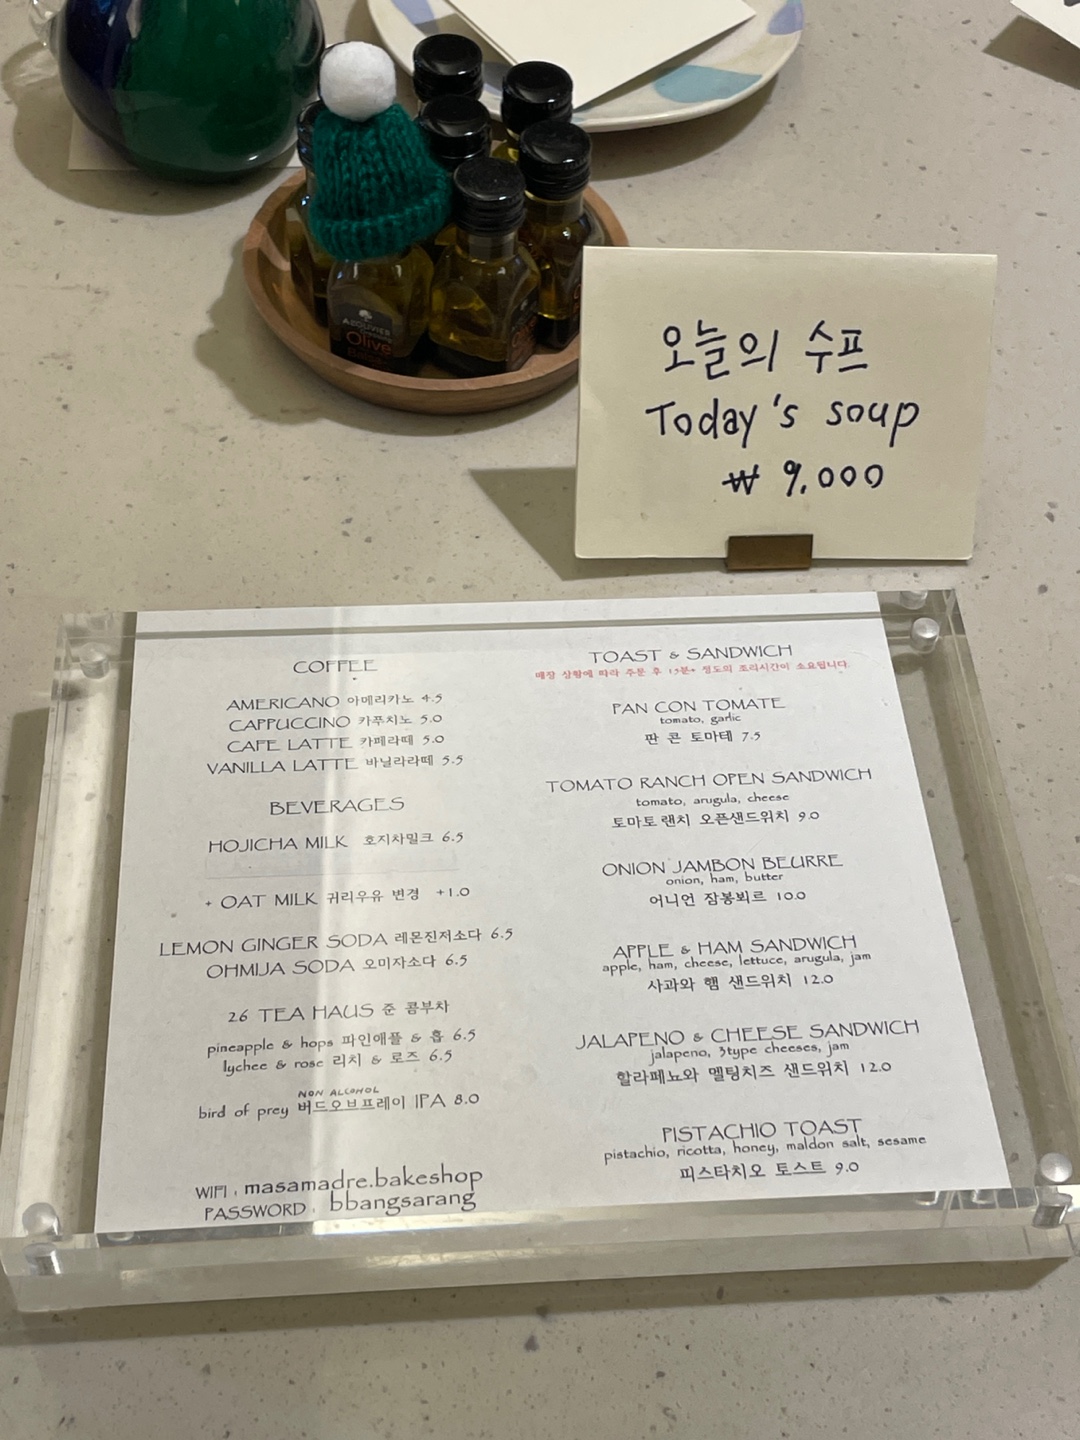 AEOLIVIER
Olive
오늘의 수프
Today's soup
₩ 9,000
COFFEE
AMERICANO 아메리카노 4.5
CAPPUCCINO 카푸치노 5.0
CAFE LATTE 카페라떼 5.0
VANILLA LATTE 바닐라라떼 5.5
BEVERAGES
HOJICHA MILK 호지차밀크 6.5
+ OAT MILK 귀리우유 변경 +1.0
LEMON GINGER SODA 레몬진저소다 6.5
OHMIJA SODA 오미자소다 6.5
26 TEA HAUS 준 콤부차
pineapple & hops 파인애플 & 홉 6.5
lychee & rose 리치 & 로즈 6.5
NON ALCOHOL
bird of prey 버드오브프레이 IPA 8.0
WIFI : masamadre.bakeshop
PASSWORD : bbangsarang
TOAST & SANDWICH
매장 상황에 따라 주문 후 15분+ 정도의 조리시간이 소요됩니다.
PAN CON TOMATE
tomato, garlic
판 콘 토마테 7.5
TOMATO RANCH OPEN SANDWICH
tomato, arugula, cheese
토마토 랜치 오픈샌드위치 9.0
ONION JAMBON BEURRE
onion, ham, butter
어니언 잠봉뵈르 10.0
APPLE & HAM SANDWICH
apple, ham, cheese, lettuce, arugula, jam
사과와 햄 샌드위치 12.0
JALAPENO & CHEESE SANDWICH
jalapeno, 3type cheeses, jam
할라페뇨와 멜팅치즈 샌드위치 12.0
PISTACHIO TOAST
pistachio, ricotta, honey, maldon salt, sesame
피스타치오 토스트 9.0